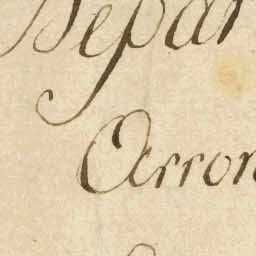 Depar
Arron